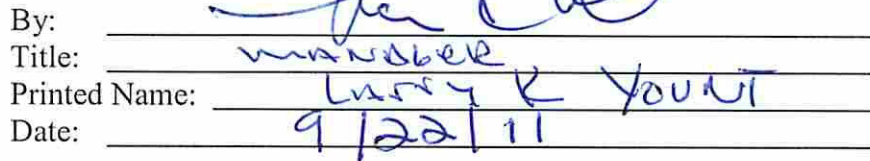 By:
Title: MANAGER
Printed Name: LARRY K YOUNT
Date: 9/22/11